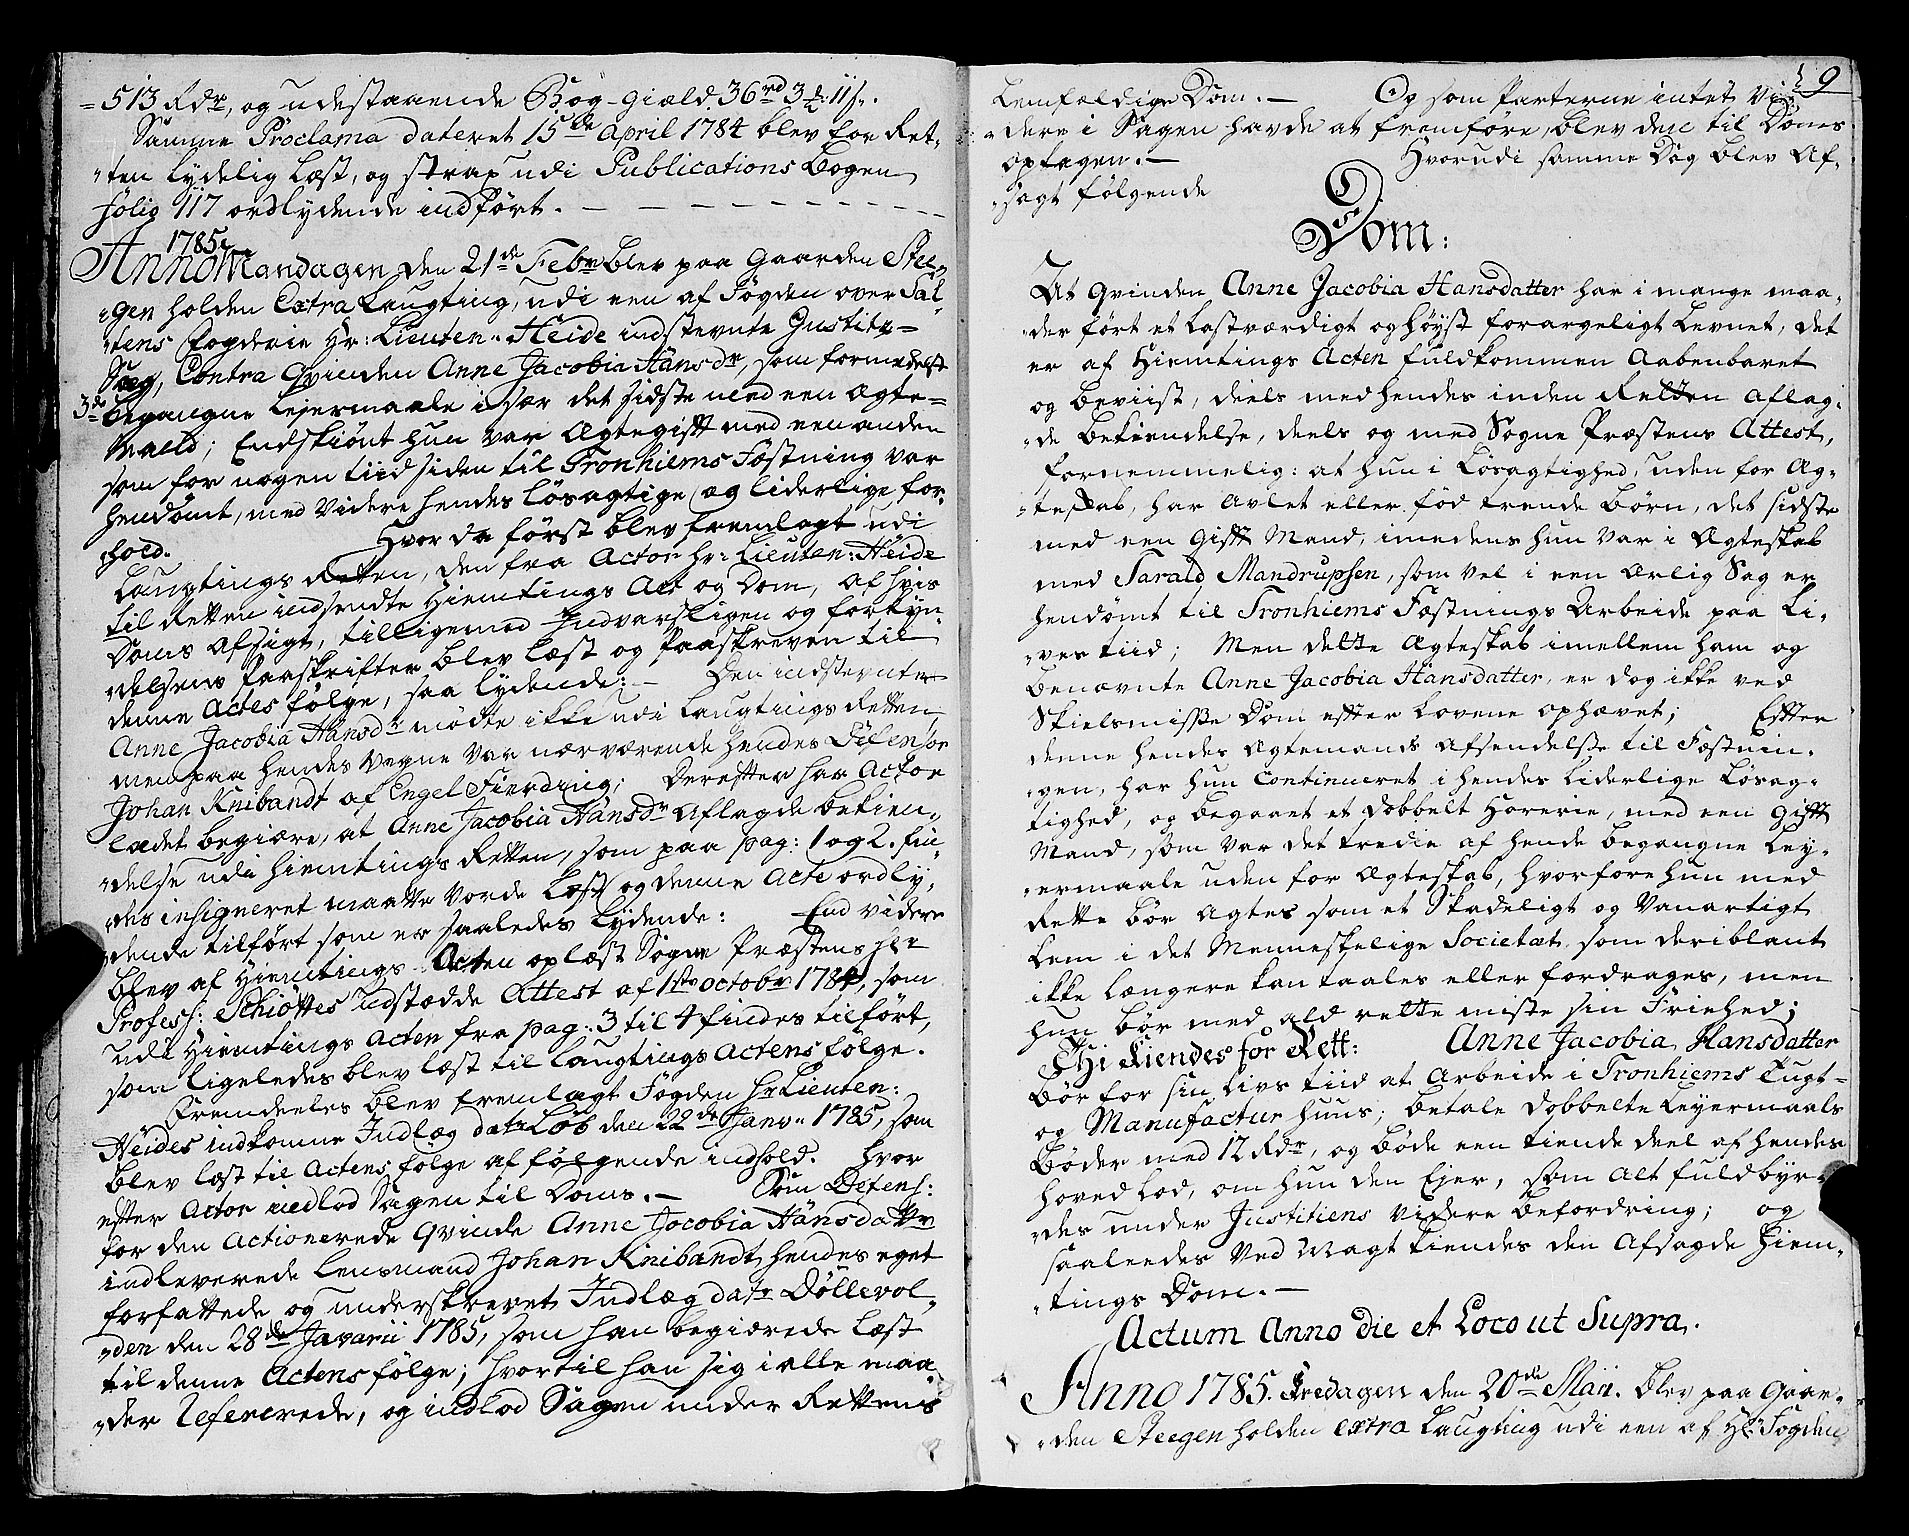 =513 Rdr, og udestaaende Bog-giæld 36rd 3 ½: 11s.
Samme Proclama dateret 15de April 1784 blev for Ret-
ten lydelig læst, og strax udi Publications Bogen
folio 117 ordlydende indført.
Anno 1785. Mandagen den 21de Febr blev paa Gaarden Stee-
gen holden Extra Laugting, udi een af Fogden over Sal-
tens Fogderie Hr: Lieuten: Heide indstevnte Justits-
Sag, Contra Qvinden Anne Jacobia Hansdr, som formedelst
3de begangne Lejermaale især det sidste med een Ægte-
Mand; Endskiönt hun var Ægtegift med een anden
som for nogen tiid siden til Tronhiems Fæstning var
hendömt, med videre hendes lösagtige og liderlige for-
hold. Hvor da först blev fremlagt udi
Laugtings Retten, den fra Actor Hr: Lieuten: Heide
til Retten indsendte Hiemtings Act og Dom, af hvis
Doms Afsigt, tilligemed Indvarslingen og forkyn-
delsens Paaskrifter blev læst og Paaskreven til
denne Actes følge, saa lydende:— Den indstevnte
Anne Jacobia Hansdr mødte ikke udi Laugtings Retten,
men paa hendes vegne var nærværende hendes Defensor
Johan Knibandt af Engel Fierding; Derefter har Actor
ladet begiære, at Anne Jacobia Hansdr aflagde bekien-
delse udi Hiemtings Retten, som paa pag: 1 og 2. fin-
des insigneret maatte vorde læst og denne Acte ordly-
dende tilført som er saaledes lydende: End videre
blev af Hiemtings Acten oplæst Sogne Præstens Her
Profess: Schiöttes udstædde Attest af 1ste octobr 1784, som
udi Hiemtings Acten fra pag: 3 til 4 findes tilført,
som ligeledes blev læst til Laugtings Actens følge.
Fremdeeles blev fremlagt Fogden Hr Lieuten:
Heides indkomne Indlæg datr Löb den 22de Janv: 1785, som
blev læst til Actens følge af følgende indhold. Hvor
efter Actor indlod Sagen til Doms.— Som Defens:
for den actionerede Qvinde Anne Jacobia Hansdattr
indleverede Lensmand Johan Knibandt, hendes eget
forfattede og underskrevet Indlæg datr Döllevol-
den den 28de Javarii 1785, som han begiærede læst
til denne Actens følge; hvortil han sig i alle maa-
der Refererede, og indlod Sagen under Rettens
9
Lemfældige Dom.— Og som Parterne intet vi-
dere i Sagen havde at fremføre, blev den til Doms
optagen.— Hvorudi samme Dag blev Af-
sagt følgende
Dom:
At Qvinden Anne Jacobia Hansdatter har i mange maa-
der ført et Lastværdigt og høyst forargeligt Levnet, det
er af Hiemtings Acten fuldkommen Aabenbaret
og beviist, deels med hendes inden Retten aflag-
de bekiendelse, deels og med Sogne Præstens Attest,
fornemmelig: at hun i Løsagtighed, uden for Æg-
teskab, har avlet eller fød trende Börn, det sidste
med een Gift Mand, imedens hun var i Ægteskab
med Tarald Mandrupsen, som vel i een ærlig Sag er
hendömt til Tronhiems Fæstnings Arbeide paa Li-
ves tiid; Men dette Ægteskab imellem ham og
benævnte Anne Jacobia Hansdatter, er dog ikke ved
Skielsmisse Dom efter Lovene ophævet; Efter
denne hendes Ægtemands afsendelse til Fæstnin-
gen, har hun Continueret i hendes liderlige Løsag-
tighed, og begaaet et dobbelt Horerie, med een gift
Mand, som var det tredie af hende begangne Ley-
ermaale uden for Ægteskab, hvorfore hun med
Rette bör agtes som et Skadeligt og Vanartigt
Lem i det Menneskelige Societæt som deriblant
ikke længere kan taales eller fordrages, men
hun bör med ald rette miste sin Friehed;
Thi kiendes for Rett: Anne Jacobia Hansdatter
bör for sin Livs tiid at Arbeide i Tronhiems Tugt-
og Manufactur huus; betale dobbelte Leyermaals
Bøder med 12 Rdr, og bøde een tiende deel af hendes
hoved Lod, om hun den Ejer, som alt fuldbyr-
des under Justitiens videre befordring; og
saaleedes ved Magt kiendes den Afsagde Hiem-
tings Dom.—
Actum Anno die et Loco ut Supra.
Anno 1785. Fredagen den 20de Maii. blev paa Gaar-
den Steegen holden extra Laugting udi een af Hr Fogden